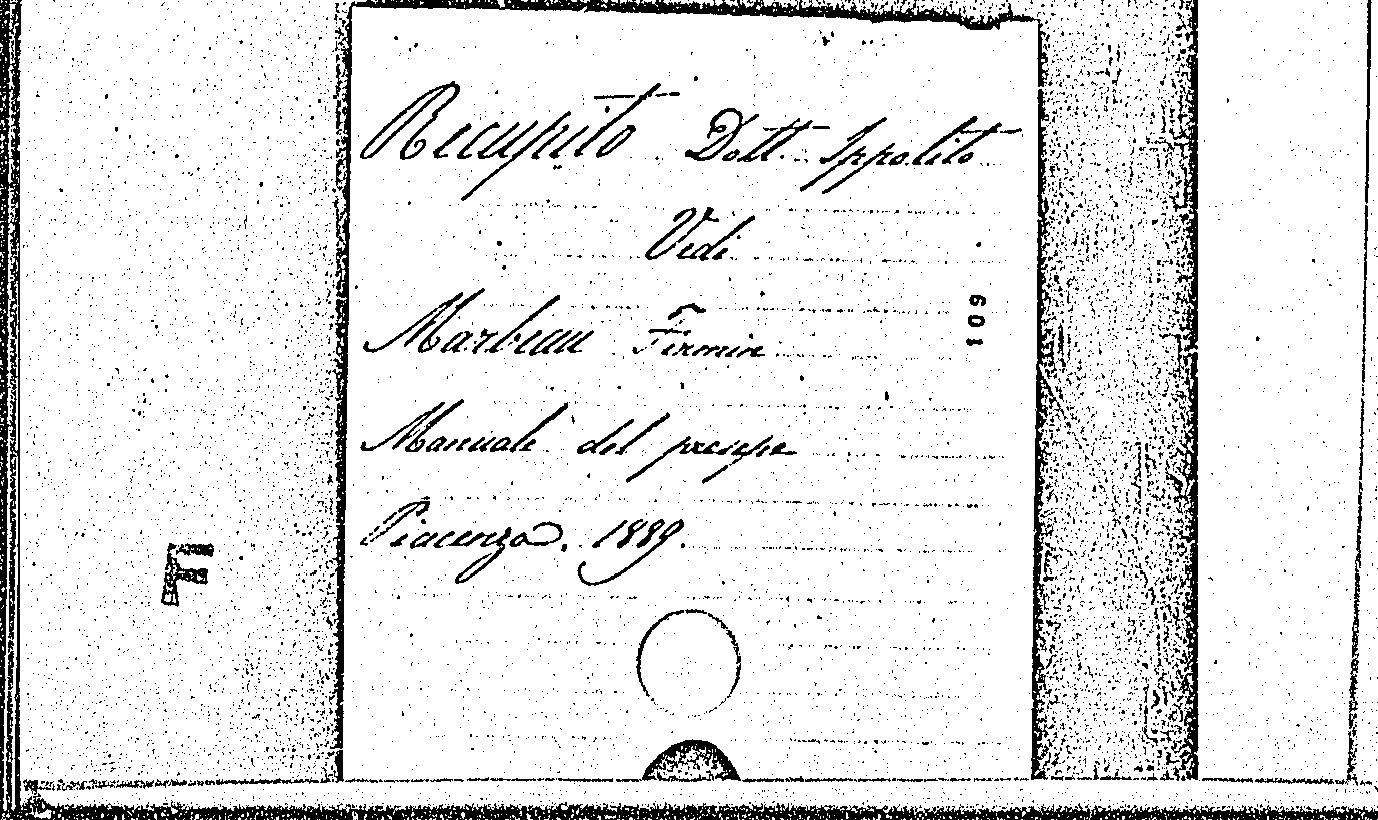 Recupito Dott. Ippolito
Vedi
Marbeau Firmin
109
Manuale del presepe
Piacenza, 1889.